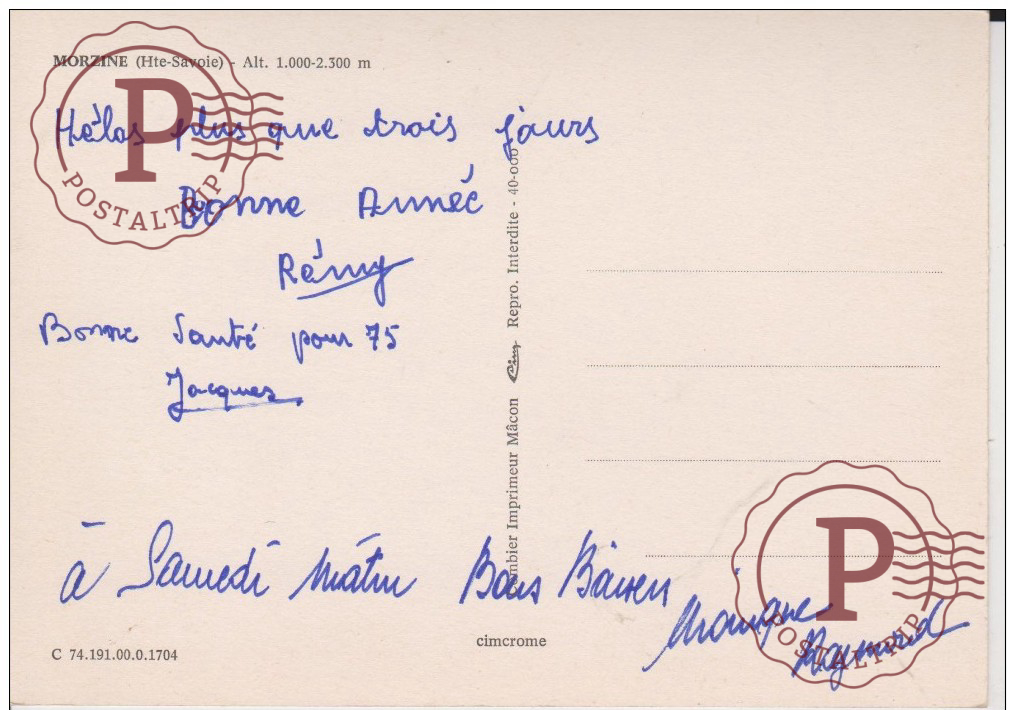 MORZINE (Hte-Savoie) - Alt. 1.000-2.300 m
Hélas plus que trois jours
Bonne Année
Rémy
Bonne Santé pour 75
Jacques
à Samedi matin Bons Baisers
Monique
Raymond
Combier Imprimeur Mâcon Cim Repro. Interdite - 40-000
cimcrome
C 74.191.00.0.1704
P
POSTALTRIP
P
POSTALTRIP